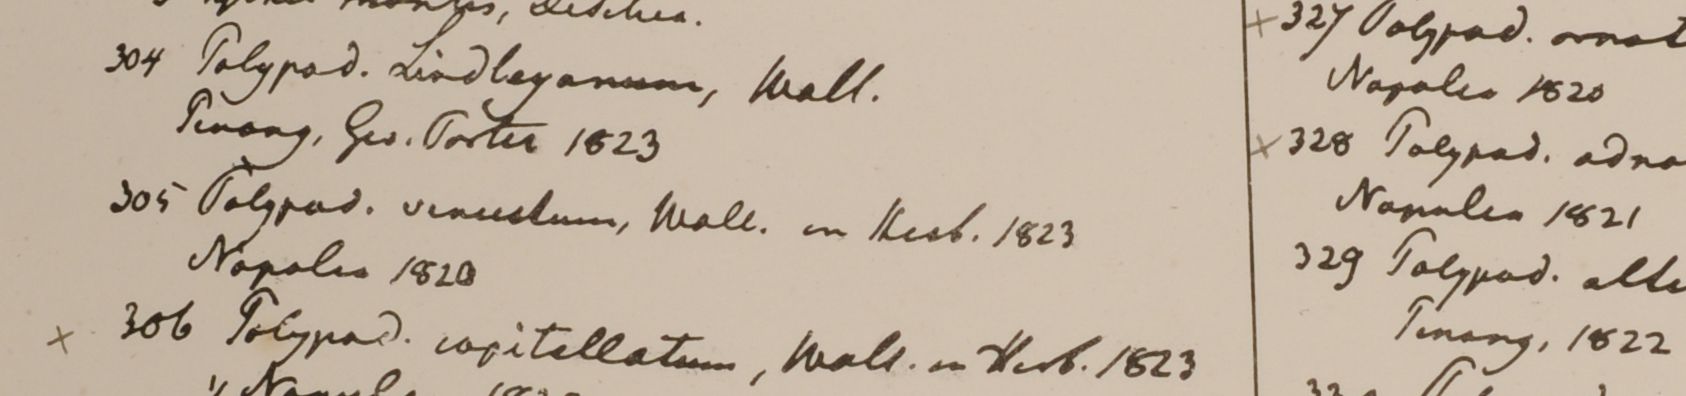 montis,
304 Polypod. Lindleyanum, Wall.
Penang, Geo. Porter 1823
305 Polypod. venustum, Wall. in Herb. 1823
Napalia 1820
× 306 Polypod. capitellatum, Wall. in Herb. 1823
1
× 327 Polypod. ornat
Napalia 1820
× 328 Polypod. adna
Napalia 1821
329 Polypod. alte
Penang, 1822